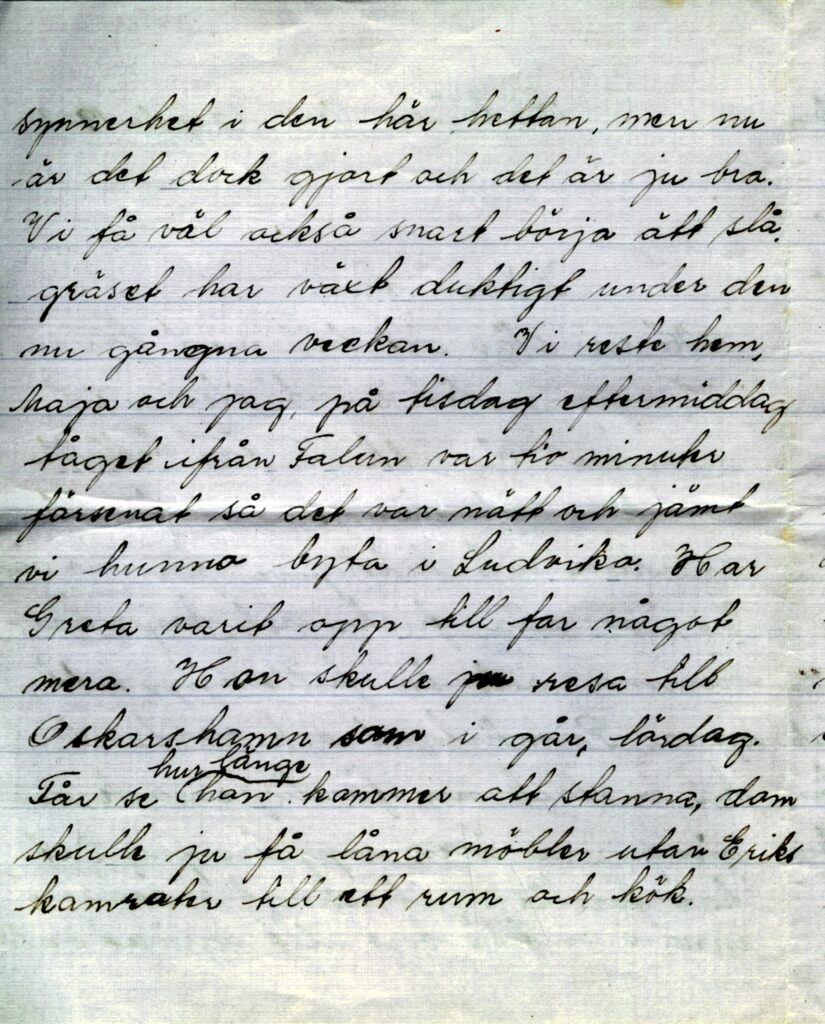 synnerhet i den här hettan, men nu
är det dock gjort och det är ju bra.
Vi få väl också snart börja ätt slå,
gräset har växt duktigt under den
nu gångna veckan. Vi reste hem,
Maja och jag, på tisdag eftermiddag
tåget ifrån Falun var tio minuter
försenat så det var nätt och jämt
vi hunno byta i Ludvika. Har
Greta varit opp till far något
mera. Hon skulle ju resa till
Oskarshamn som i går, lördag.
hur länge
Får se hon kommer att stanna, dom
skulle ju få låna möbler utav Eriks
kamrater till ett rum och kök.